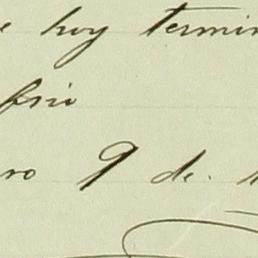 e hoy termin
frio
ro 9 de